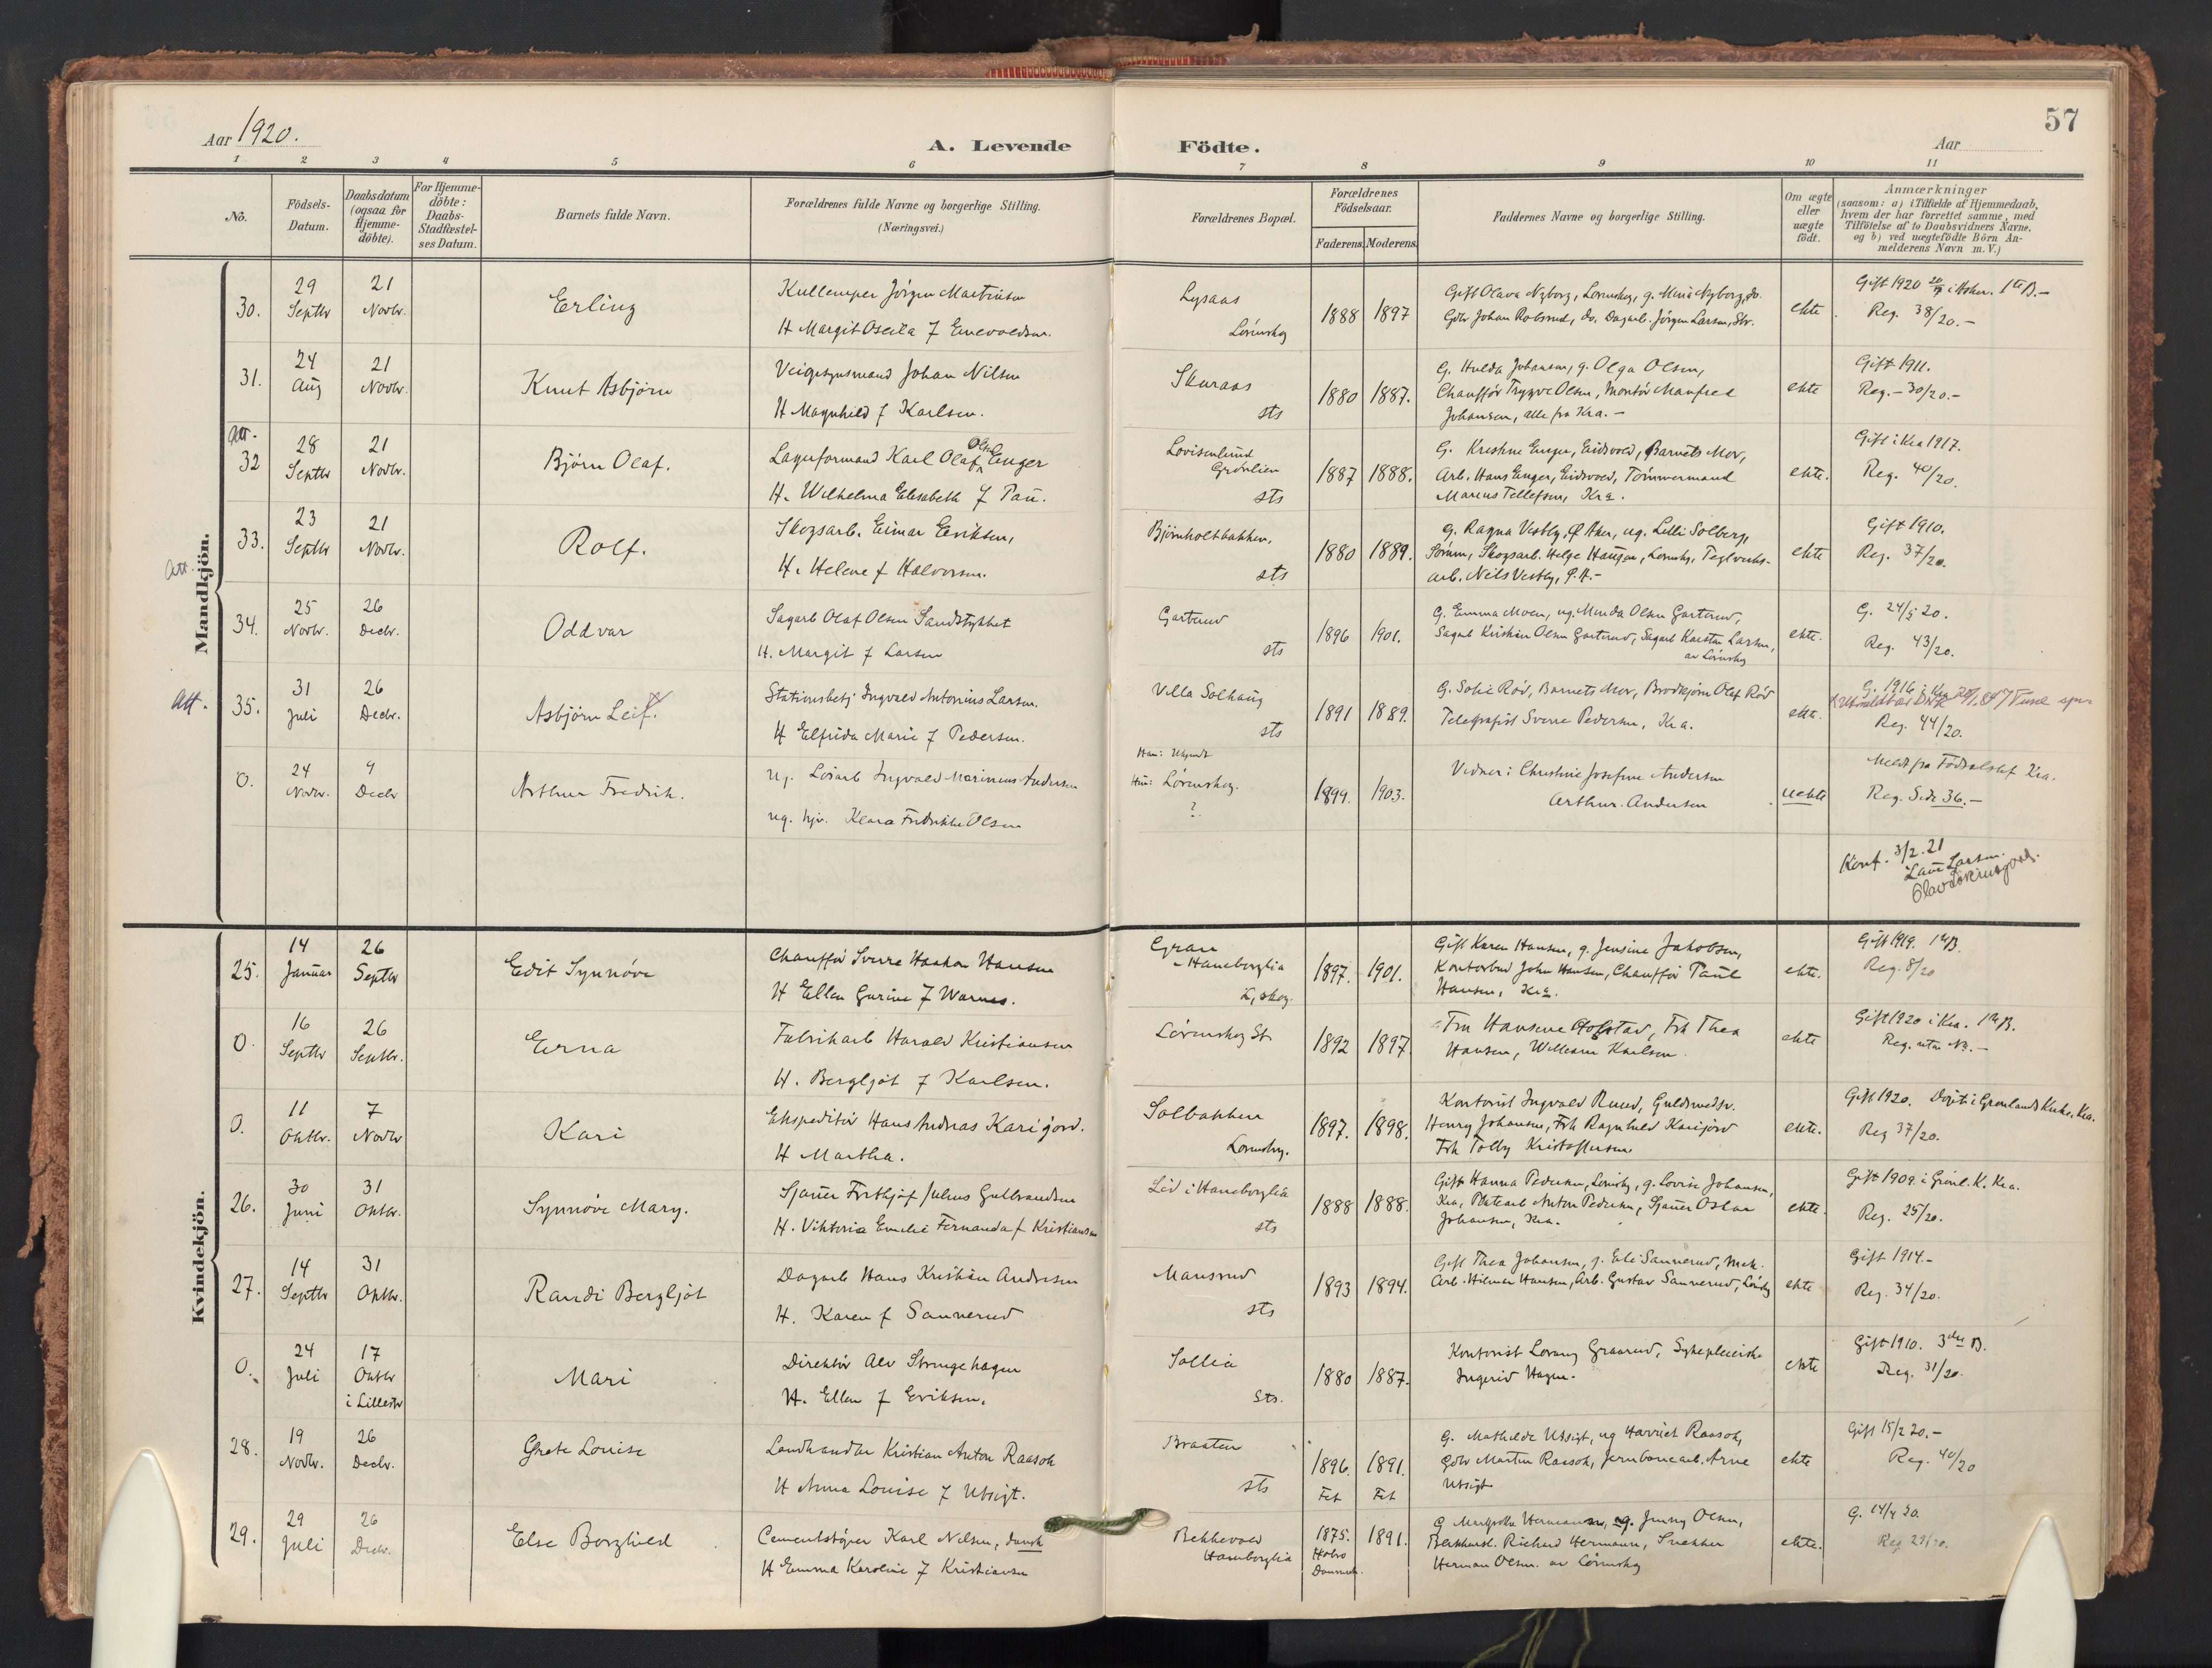 57
Aar 1920.
A. Levende Födte.
Aar
1 2 3 4 5 6 7 8 9 10 11
No.
Födsels-
Datum.
Daabsdatum
(ogsaa for
Hjemme-
döbte).
For Hjemme-
döbte:
Daabs-
Stadfæstel-
ses Datum.
Barnets fulde Navn.
Forældrenes fulde Navne og borgerlige Stilling.
(Næringsvei.)
Forældrenes Bopæl.
Forældrenes
Födselsaar.
Faderens. Moderens.
Faddernes Navne og borgerlige Stilling.
Om ægte
eller
uægte
födt.
Anmærkninger
(saasom: a) i Tilfælde af Hjemmedaab,
hvem der har forrettet samme, med
Tilföielse af to Daabsvidners Navne,
og b) ved uægtefödte Börn An-
melderens Navn m. V.)
Mandkjön.
30.
29 Septbr
21 Novbr.
Erling
Jörgen Martinsen
H Margit f
Lysaas
Lörenskog
1888 1897
Gift Olava Nyborg, Lörenskog, g. Nyborg, do.
Gdbr Johan Robsrud, do. Dagarb. Jörgen Larsen, Str.
ekte
Gift 1920 i Asker. 1te B.-
Reg. 38/20.-
31.
24 Aug
21 Novbr.
Knut Asbjörn
Johan Nilsen
H Magnhild f Karlsen.
Skuraas
sts
1880 1887.
G. Hulda Johansen, g. Olga Olsen,
Chaufför Trygve Olsen, Montör Manfred
Johansen, alle fra Kra. -
ekte
Gift 1911.
Reg. - 30/20.-
Att.
32
28 Septbr
21 Novbr.
Björn Olaf.
Lagerformand Karl Olaf Olsen Enger
H. Wilhelma Elisabeth f Tau.
Lovisenlund
Grönlien
sts
1887 1888.
G. Kristine Enger, Eidsvold, Barnets Mor,
Arb. Hans Enger, Eidsvold, Tömmermand
Marius Tellefsen, Kra.
ekte.
Gift i Kra 1917.
Reg. 40/20.
Att.
33.
23 Septbr
21 Novbr.
Rolf.
Skogsarb. Einar Eriksen,
H. Helene f Halvorsen.
Björnholtbakken,
sts
1880 1889.
G. Ragna Vestby, Ö. Aker, ug. Lilli Solberg,
Sörum, Skogsarb. Helge Haugen, Lörenskog, Teglverks-
arb. Nils Vestby, Ö. A.-
ekte
Gift 1910.
Reg. 37/20.
34.
25 Novbr.
26 Decbr.
Oddvar
Sagarb Olaf Olsen Sandstykket
H. Margit f Larsen
Garterud
sts
1896 1901.
G. Emma Moen, ug. Minda Olsen Garterud,
Sagarb Kristian Olsen Garterud, Sagarb Karsten Larsen,
av Lörenskog
ekte.
G. 24/5 20.
Reg. 43/20.
Att.
35.
31 Juli
26 Decbr.
Asbjörn Leif.
Stationsbetj Ingvald Antonius Larsen.
H Elfrida Marie f Pedersen.
Villa Solhaug
sts
1891 1889.
G. Sofie Röd, Barnets Mor, Brödkjörer Olaf Röd
Telegrafist Sverre Pedersen, Kra.
ekte.
G. 1916 i Kra
Reg. 44/20.
0.
24 Novbr.
9 Decbr
Arthur Fredrik.
Ug. Lösarb Ingvald Marinius Andersen
ug. hjv. Klara Fredrikke Olsen
Han: Ukjendt
Hun: Lörenskog.
?
1899. 1903.
Vidner: Christine Josefine Andersen
Arthur Andersen
uekte
Meldt fra Födselsstif Kra.
Reg. Side 36.-
Konf. 3/2.21
Laur Larsen.
Kvindekjön.
25.
14 Januar
26 Septbr
Edit Synnöve
Chaufför Sverre Haakon Hansen
H Ellen Gurine f Warnes.
Gran
Haneborglia
L.skog.
1897. 1901.
Gift Karen Hansen, g. Jensine Jakobsen,
Kontorbud John Hansen, Chaufför Paul
Hansen, Kra.
ekte.
Gift 1919. 1te B.
Reg. 8/20
0.
16 Septbr
26 Septbr.
Erna
Fabrikarb Harald Kristiansen
H. Bergljot f Karlsen.
Lörenskog St.
1892 1897
Fru Hansine Hofstad, Frk Thea
Hansen, William Karlsen.
ekte
Gift 1920 i Kra. 1te B.
Reg. uten No.-
0.
11 Oktbr.
7 Novbr
Kari
Ekspeditör Hans Andreas Karijord.
H Martha.
Solbakken
Lörenskog.
1897. 1898.
Kontorist Ingvald Ruud, Guldsmedsv.
Henry Johansen, Frk Ragnhild Karijord
Frk Tolly Kristoffersen.
ekte.
Gift 1920. Döpt i Grönlands Kirke, Kra.
Reg 37/20.
26.
30 Juni
31 Oktbr.
Synnöve Mary.
Sjauer Frithjof Julius Gulbrandsen
H. Viktoria Emelie Fernanda f Kristiansen
Lid i Haneborglia
sts
1888 1888.
Gift Hanna Pedersen, Lörenskog, g. Lovise Johansen,
Kra, Anton Pedersen, Sjauer Oskar
Johansen, Kra.
ekte.
Gift 1909. i Grönl. K. Kra.
Reg. 25/20.
27.
14 Septbr
31 Oktbr.
Randi Bergljot
Dagarb Hans Kristian Andersen
H. Karen f Sannerud
Mansrud
sts
1893 1894.
Gift Thea Johansen, g. Eli Sannerud, Mek.
Arb. Hilmar Hansen, Arb. Gustav Sannerud, Lörenskog
ekte
Gift 1914.-
Reg. 34/20.
0.
24 Juli
17 Oktbr
i Lillestr
Mari
Direktör Alv Strengehagen
H. Ellen f Eriksen.
Sollia
sts.
1880 1887.
Kontorist Graarud, Sykepleierske
Ingerid Hagen.
ekte
Gift 1910. 3die B.
Reg. 31/20.
28.
19 Novbr.
26 Decbr.
Grete Louise
Landhandler Kristian Anton Raasok
H Anna Louise f Utsigt.
Braaten
sts
1896. 1891.
Fet Fet
G. Mathilde Utsigt, ug Harriet Raasok,
Gdbr Martin Raasok, Jernbanearb. Arne
Utsigt
ekte
Gift 15/2 20.-
Reg. 40/20
29.
29 Juli
26 Decbr.
Else Borghild
Cementstöper Karl Nilsen, dansk
H Emma Karoline f Kristiansen
Bekkevold
Haneborglia
1875. 1891.
Hobro
Danmark.
G Hermansen, ug. Jenny Olsen,
Richard Hermann, Snekker
Herman Olsen. av Lörenskog
ekte.
G. 14/4 20.
Reg 29/20.